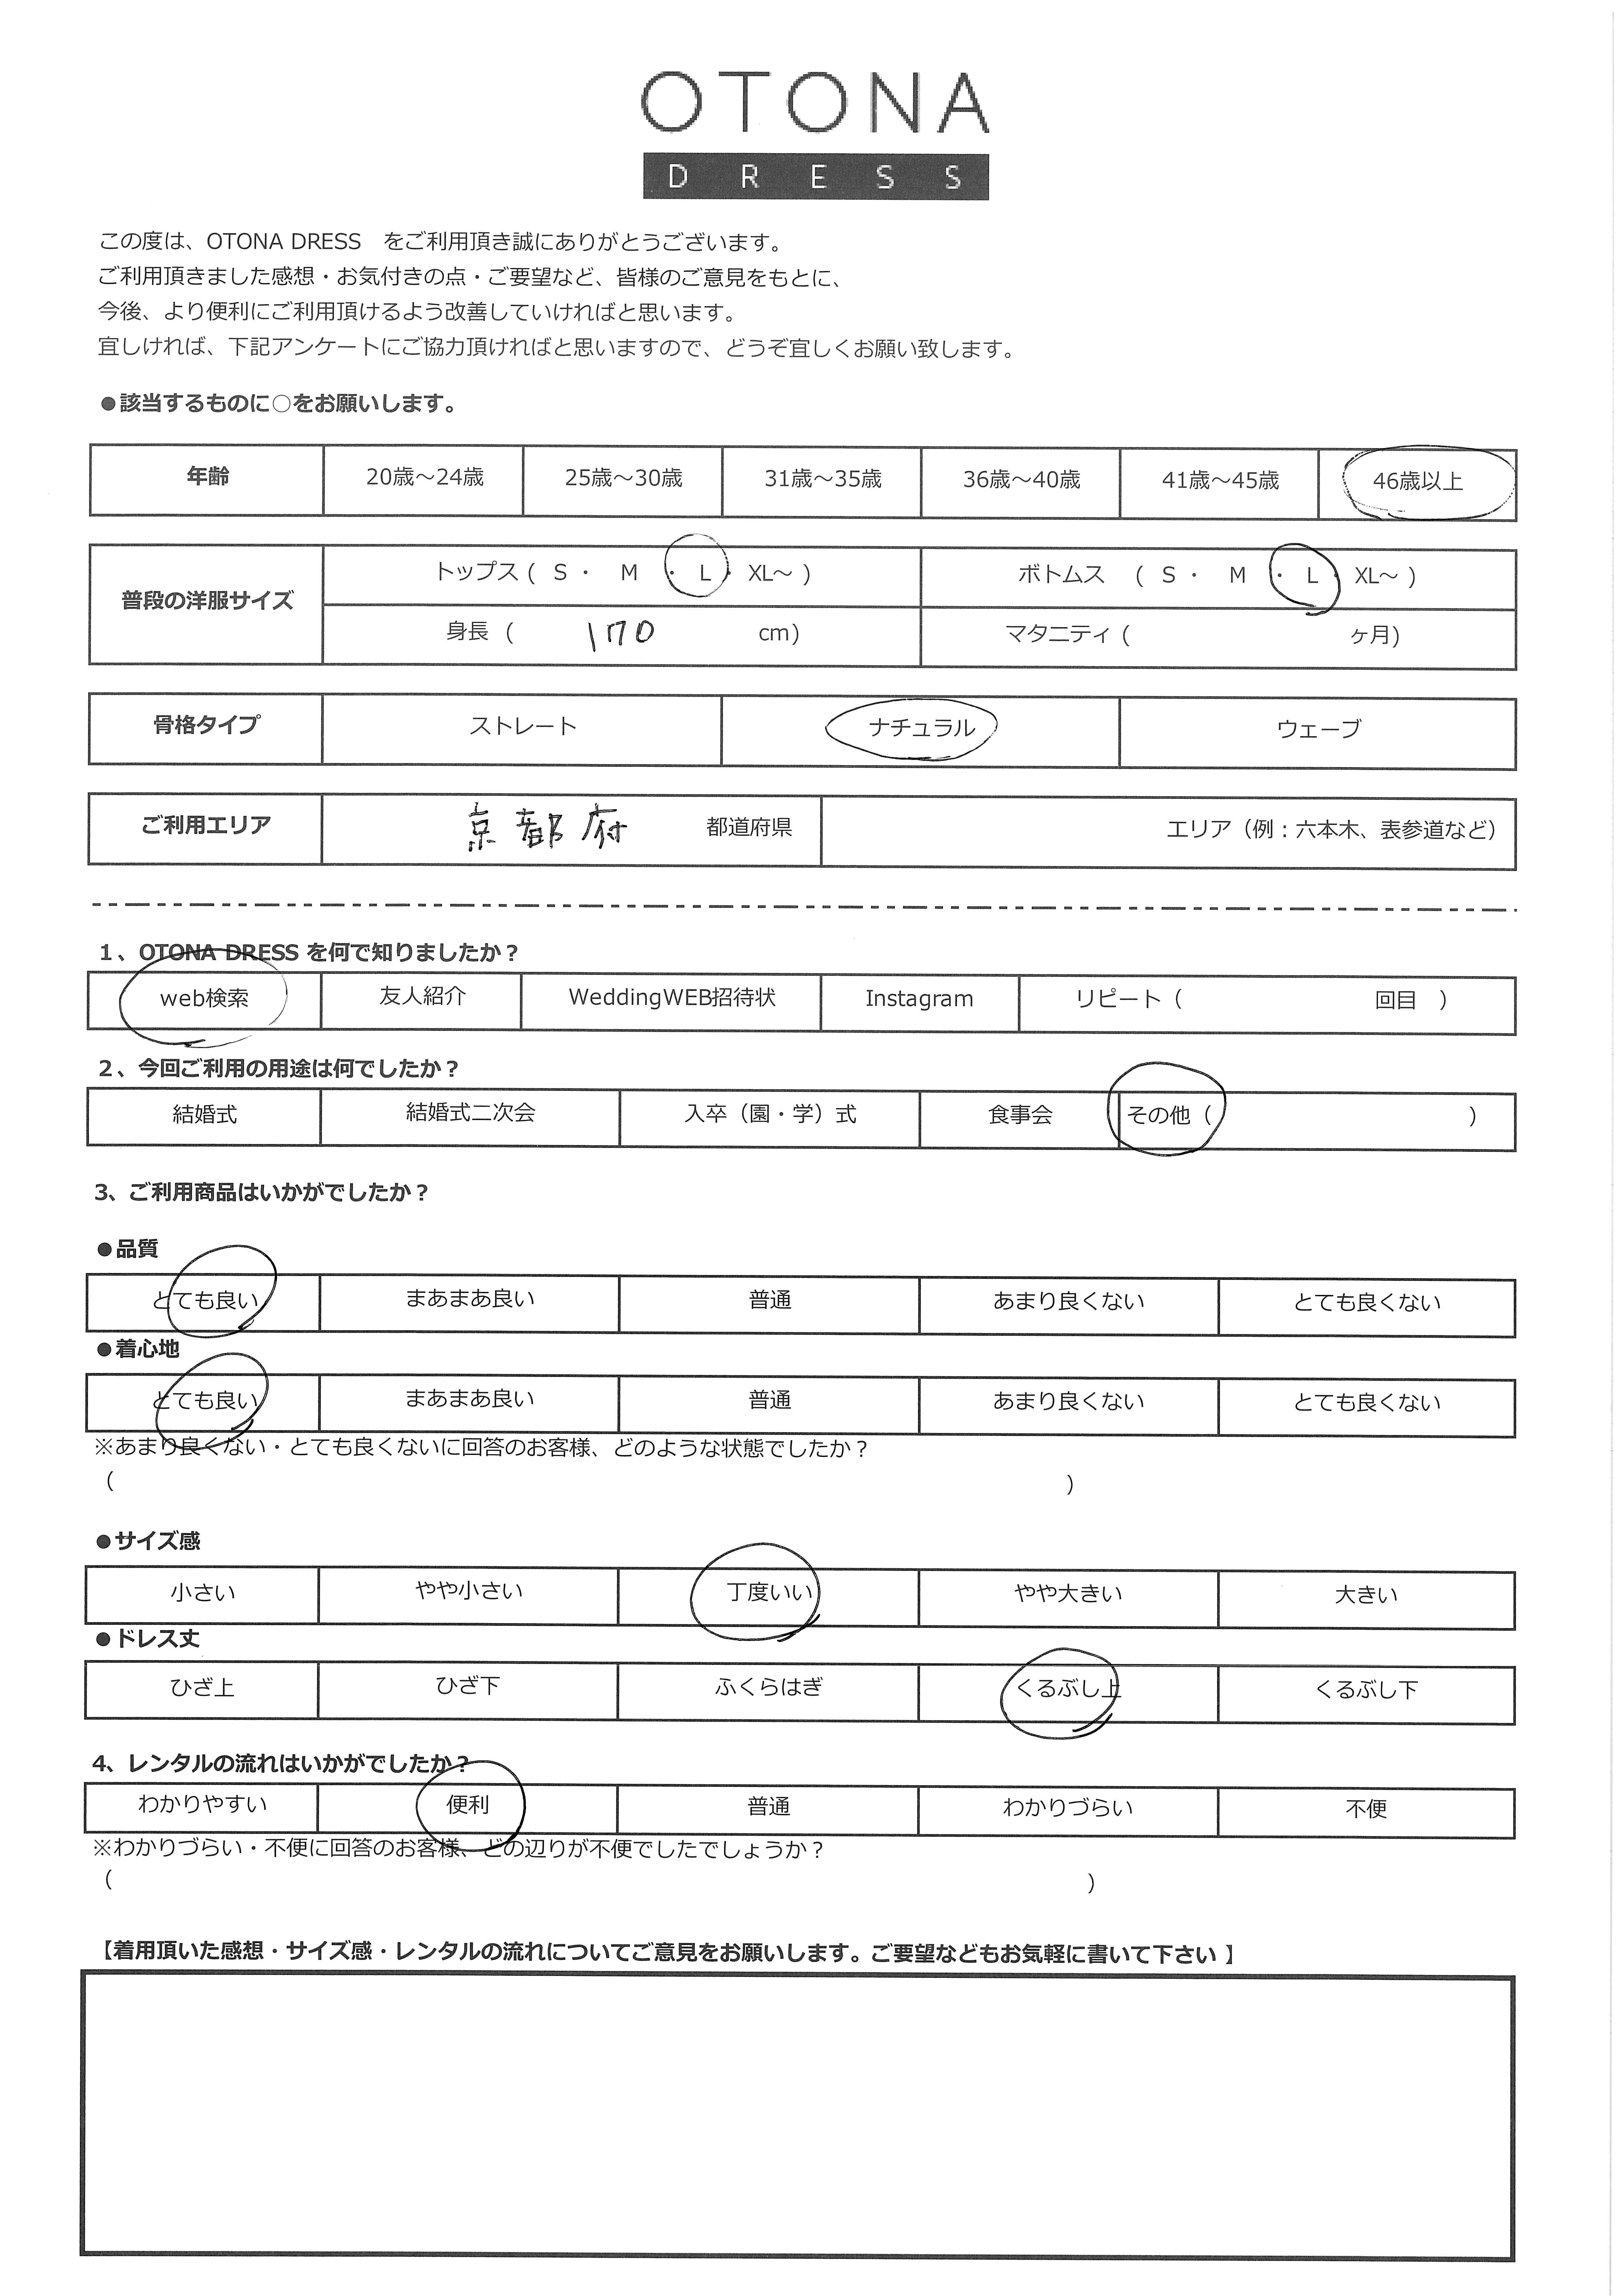 OTONA
DRESS
この度は、OTONA DRESS　をご利用頂き誠にありがとうございます。
ご利用頂きました感想・お気付きの点・ご要望など、皆様のご意見をもとに、
今後、より便利にご利用頂けるよう改善していければと思います。
宜しければ、下記アンケートにご協力頂ければと思いますので、どうぞ宜しくお願い致します。
●該当するものに○をお願いします。
年齢 20歳～24歳 25歳～30歳 31歳～35歳 36歳～40歳 41歳～45歳 46歳以上
普段の洋服サイズ トップス ( S ・ M ・ L ・ XL～ ) ボトムス ( S ・ M ・ L ・ XL～ )
身長 ( 170 cm) マタニティ ( ヶ月)
骨格タイプ ストレート ナチュラル ウェーブ
ご利用エリア 京都府 都道府県 エリア（例：六本木、表参道など）
1、OTONA DRESS を何で知りましたか？
web検索 友人紹介 WeddingWEB招待状 Instagram リピート（ 回目 ）
2、今回ご利用の用途は何でしたか？
結婚式 結婚式二次会 入卒（園・学）式 食事会 その他（ ）
3、ご利用商品はいかがでしたか？
●品質
とても良い まあまあ良い 普通 あまり良くない とても良くない
●着心地
とても良い まあまあ良い 普通 あまり良くない とても良くない
※あまり良くない・とても良くないに回答のお客様、どのような状態でしたか？
（ ）
●サイズ感
小さい やや小さい 丁度いい やや大きい 大きい
●ドレス丈
ひざ上 ひざ下 ふくらはぎ くるぶし上 くるぶし下
4、レンタルの流れはいかがでしたか？
わかりやすい 便利 普通 わかりづらい 不便
※わかりづらい・不便に回答のお客様、どの辺りが不便でしたでしょうか？
（ ）
【着用頂いた感想・サイズ感・レンタルの流れについてご意見をお願いします。ご要望などもお気軽に書いて下さい 】